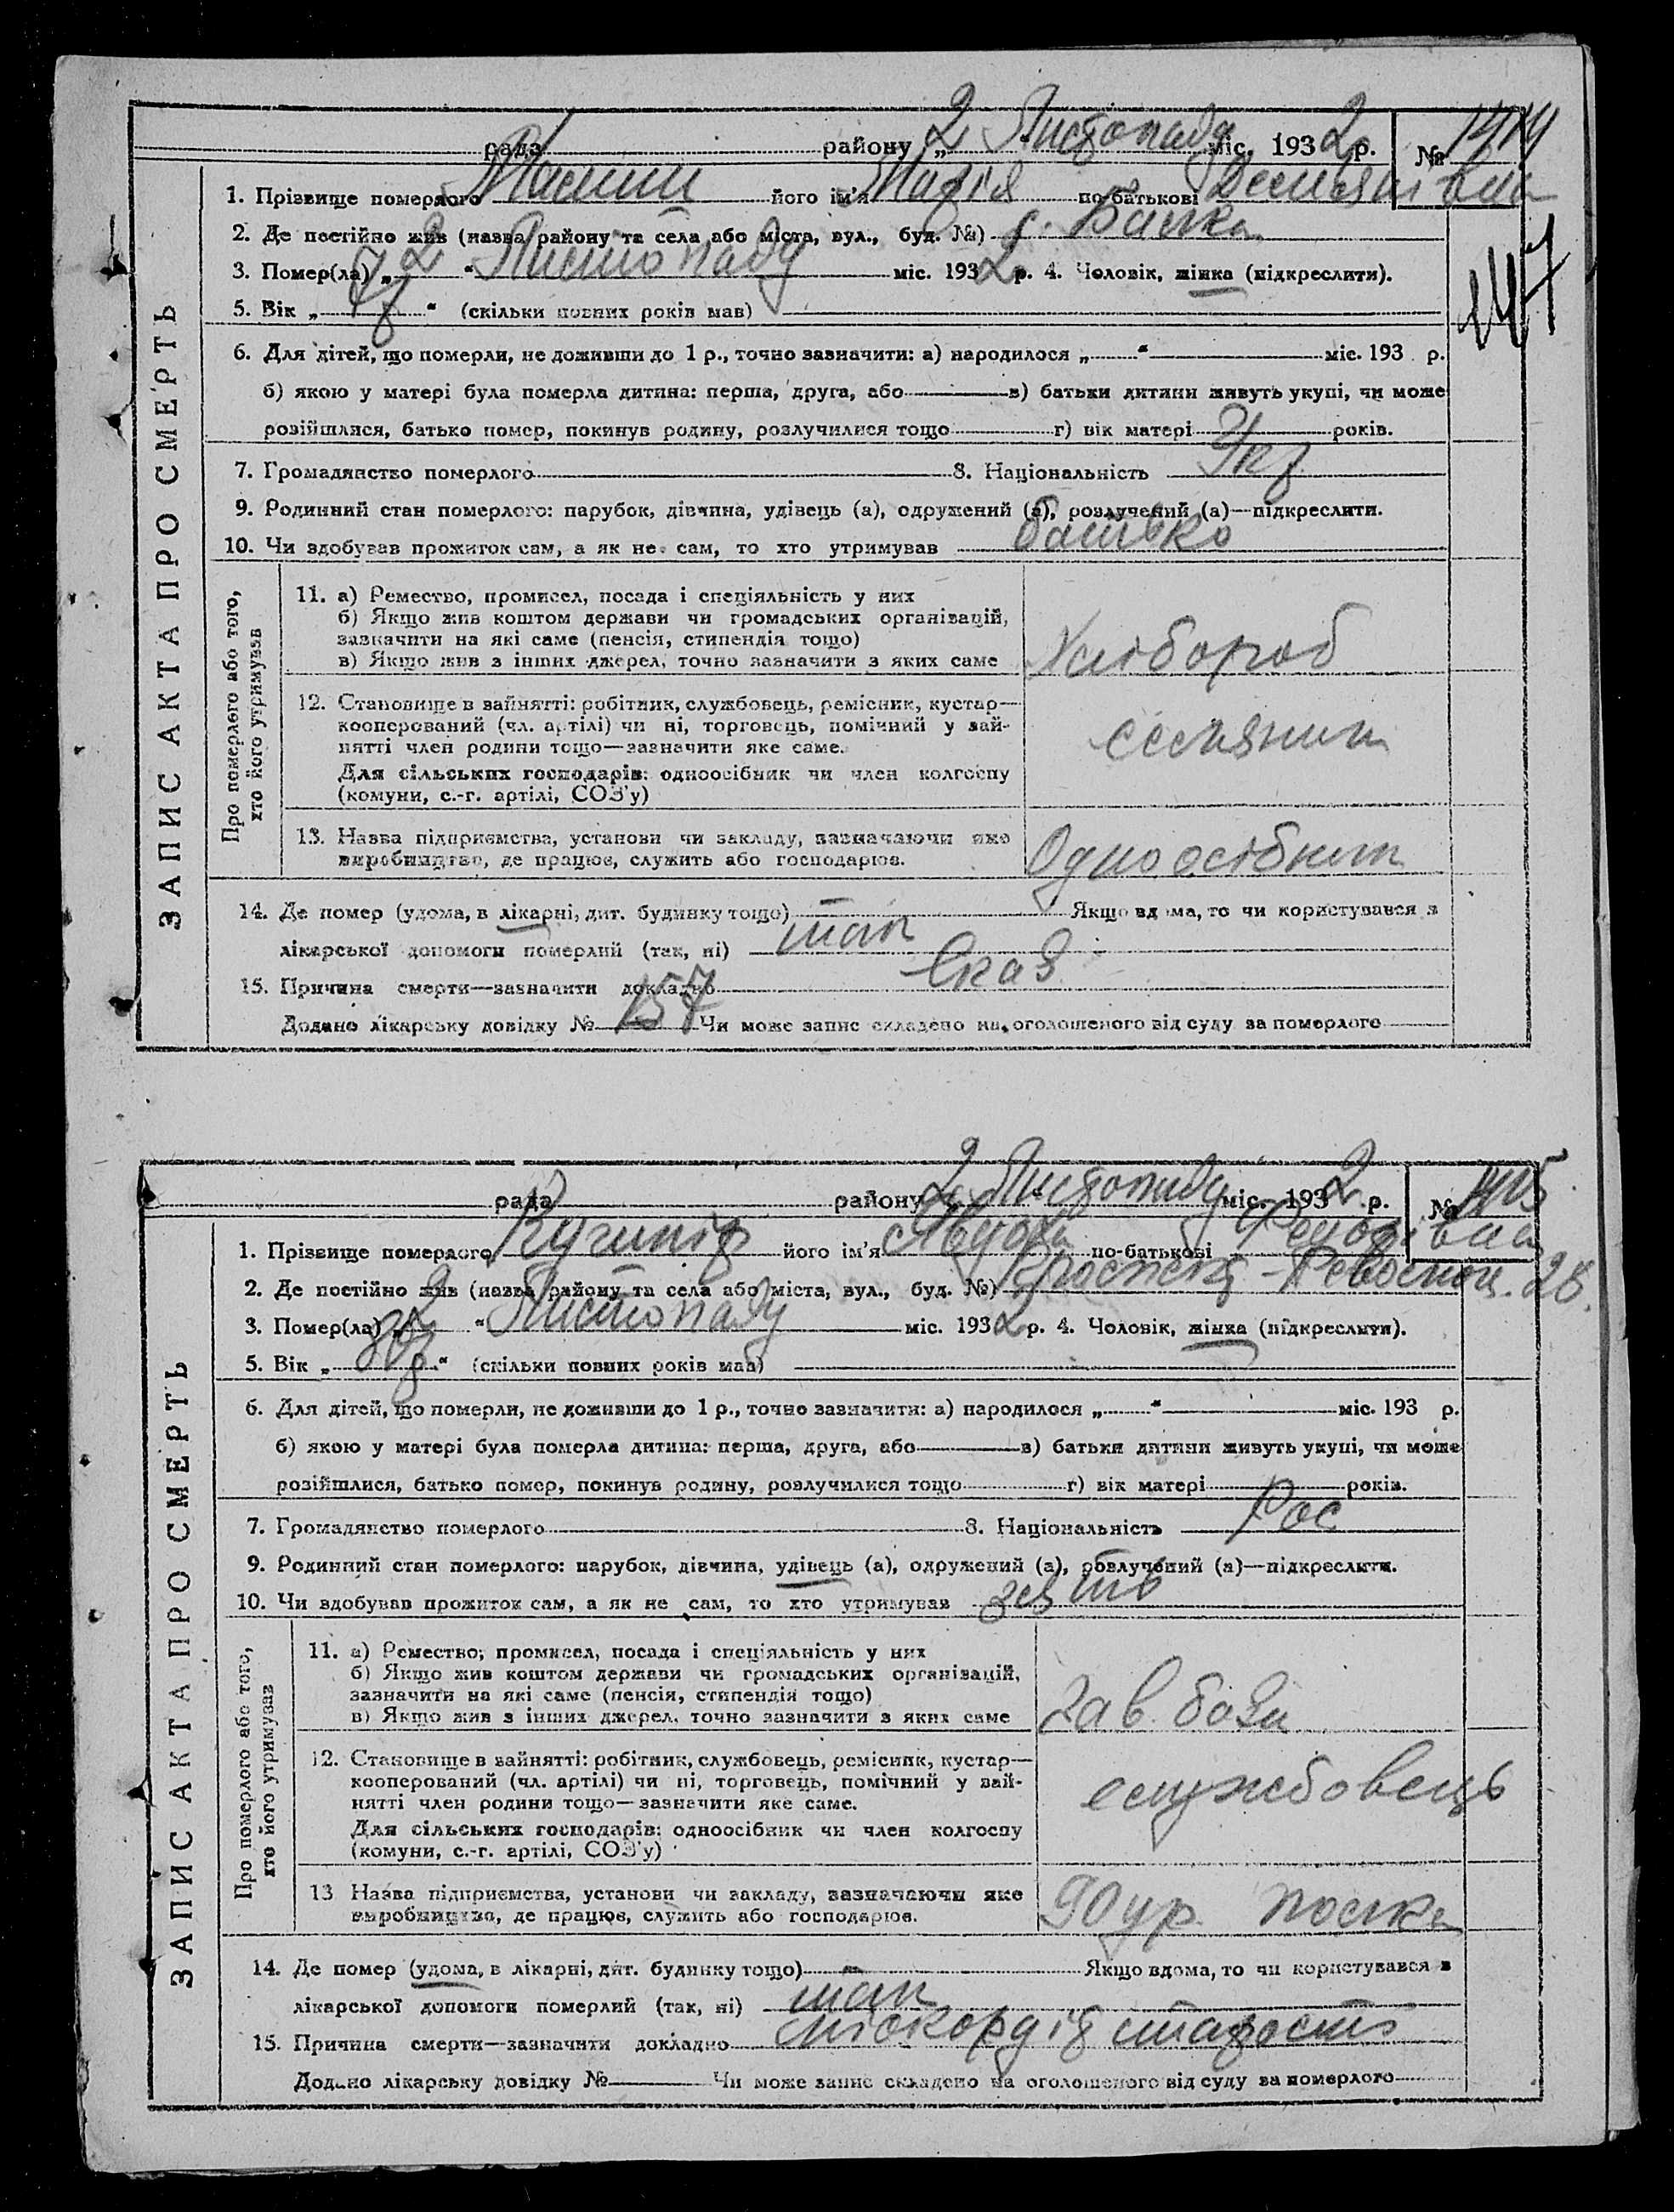 рада району „2 Листопада міс. 1932 р. №
1. Прізвище померлого його ім'я Марія по-батькові Демянівна
2. Де постійно жив (назва району та села або міста, вул., буд. №) с. Балка
3. Помер(ла) „2“ Листопаду міс. 1932 р. 4. Чоловік, жінка (підкреслити).
5. Вік „ “ (скільки повних років мав)
6. Для дітей, що померли, не доживши до 1 р., точно зазначити: а) народилося „ “ міс. 193 р.
б) якою у матері була померла дитина: перша, друга, або в) батьки дитини живуть укупі, чи може
розійшлися, батько помер, покинув родину, розлучилися тощо г) вік матері років.
7. Громадянство померлого 8. Національність Укр
9. Родинний стан померлого: парубок, дівчина, удівець (а), одружений (а), розлучений (а)—підкреслити.
10. Чи здобував прожиток сам, а як не сам, то хто утримував батько
ЗАПИС АКТА ПРО СМЕРТЬ
Про померлого або того,
хто його утримував
11. а) Ремество, промисел, посада і спеціяльність у них
б) Якщо жив коштом держави чи громадських організацій,
зазначити на які саме (пенсія, стипендія тощо)
в) Якщо жив з інших джерел, точно зазначити з яких саме
Хлібороб
12. Становище в зайнятті: робітник, службовець, ремісник, кустар—
кооперований (чл. артілі) чи ні, торговець, помічний у зай-
нятті член родини тощо—зазначити яке саме.
Для сільських господарів: одноосібник чи член колгоспу
(комуни, с.-г. артілі, СОЗ'у)
селянин
13. Назва підприємства, установи чи закладу, зазначаючи яке
виробництво, де працює, служить або господарює.
Одноосібник
14. Де помер (удома, в лікарні, дит. будинку тощо) Якщо вдома, то чи користувався з
лікарської допомоги померлий (так, ні) так
15. Причина смерти—зазначити докладно
Додано лікарську довідку № 157 Чи може запис складено на оголошеного від суду за померлого
147
рада району „2“ Листопаду міс. 1932 р. №
1. Прізвище померлого Кучипір його ім'я Явдоха по-батькові Федорівна
2. Де постійно жив (назва району та села або міста, вул., буд. №) 28.
3. Помер(ла) „2“ Листопаду міс. 1932 р. 4. Чоловік, жінка (підкреслити).
5. Вік „80 р.“ (скільки повних років мав)
6. Для дітей, що померли, не доживши до 1 р., точно зазначити: а) народилося „ “ міс. 193 р.
б) якою у матері була померла дитина: перша, друга, або в) батьки дитини живуть укупі, чи може
розійшлися, батько помер, покинув родину, розлучилися тощо г) вік матері років.
7. Громадянство померлого 8. Національність Рос
9. Родинний стан померлого: парубок, дівчина, удівець (а), одружений (а), розлучений (а)—підкреслити.
10. Чи здобував прожиток сам, а як не сам, то хто утримував зять
ЗАПИС АКТА ПРО СМЕРТЬ
Про померлого або того,
хто його утримував
11. а) Ремество, промисел, посада і спеціяльність у них
б) Якщо жив коштом держави чи громадських організацій,
зазначити на які саме (пенсія, стипендія тощо)
в) Якщо жив з інших джерел, точно зазначити з яких саме
Зав. бази
12. Становище в зайнятті: робітник, службовець, ремісник, кустар—
кооперований (чл. артілі) чи ні, торговець, помічний у зай-
нятті член родини тощо—зазначити яке саме.
Для сільських господарів: одноосібник чи член колгоспу
(комуни, с.-г. артілі, СОЗ'у)
службовець
13 Назва підприємства, установи чи закладу, зазначаючи яке
виробництво, де працює, служить або господарює.
14. Де помер (удома, в лікарні, дит. будинку тощо) Якщо вдома, то чи користувався з
лікарської допомоги померлий (так, ні) так
15. Причина смерти—зазначити докладно міокордія старости
Додано лікарську довідку № Чи може запис складено на оголошеного від суду за померлого